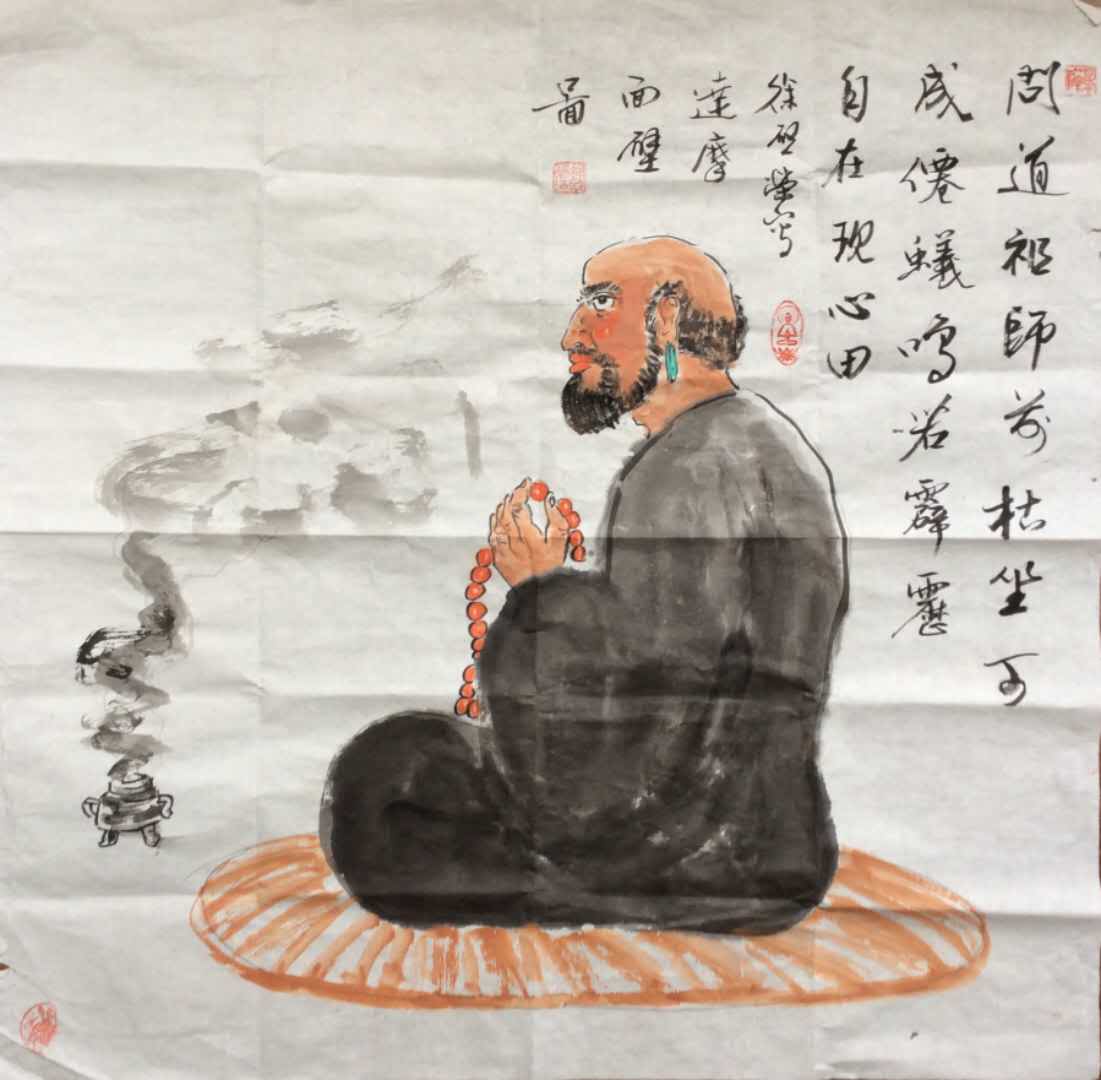 問道祖師前枯坐可
成僊蟻鳴若霹靂
自在現心田
徐啓榮寫
達摩
面壁
圖